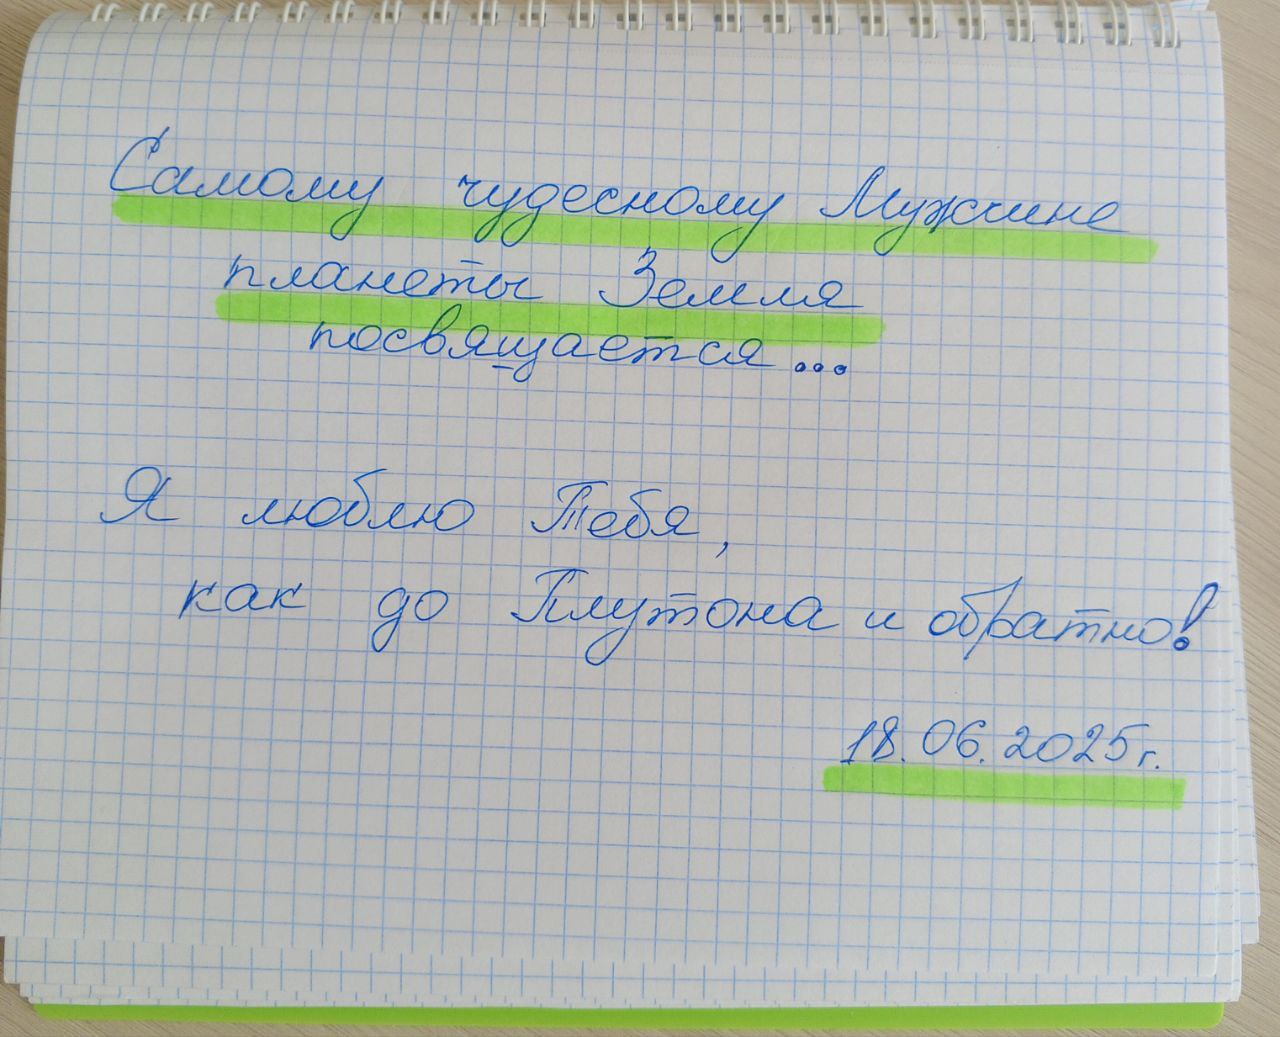 Самому чудесному Мужчине
планеты Земля
посвящается...
Я люблю Тебя,
как до Плутона и обратно!
18.06.2025г.